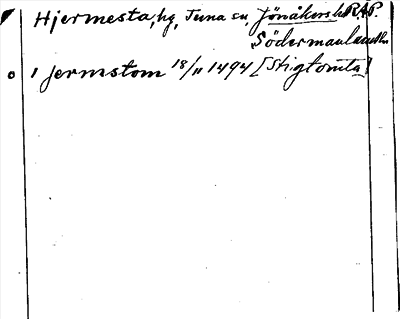 Hjermesta, hg, Tuna sn, Jönåkers hd RAP.
Södermanlands l.
i Jermstom 18/11 1494 [Stigtomta]